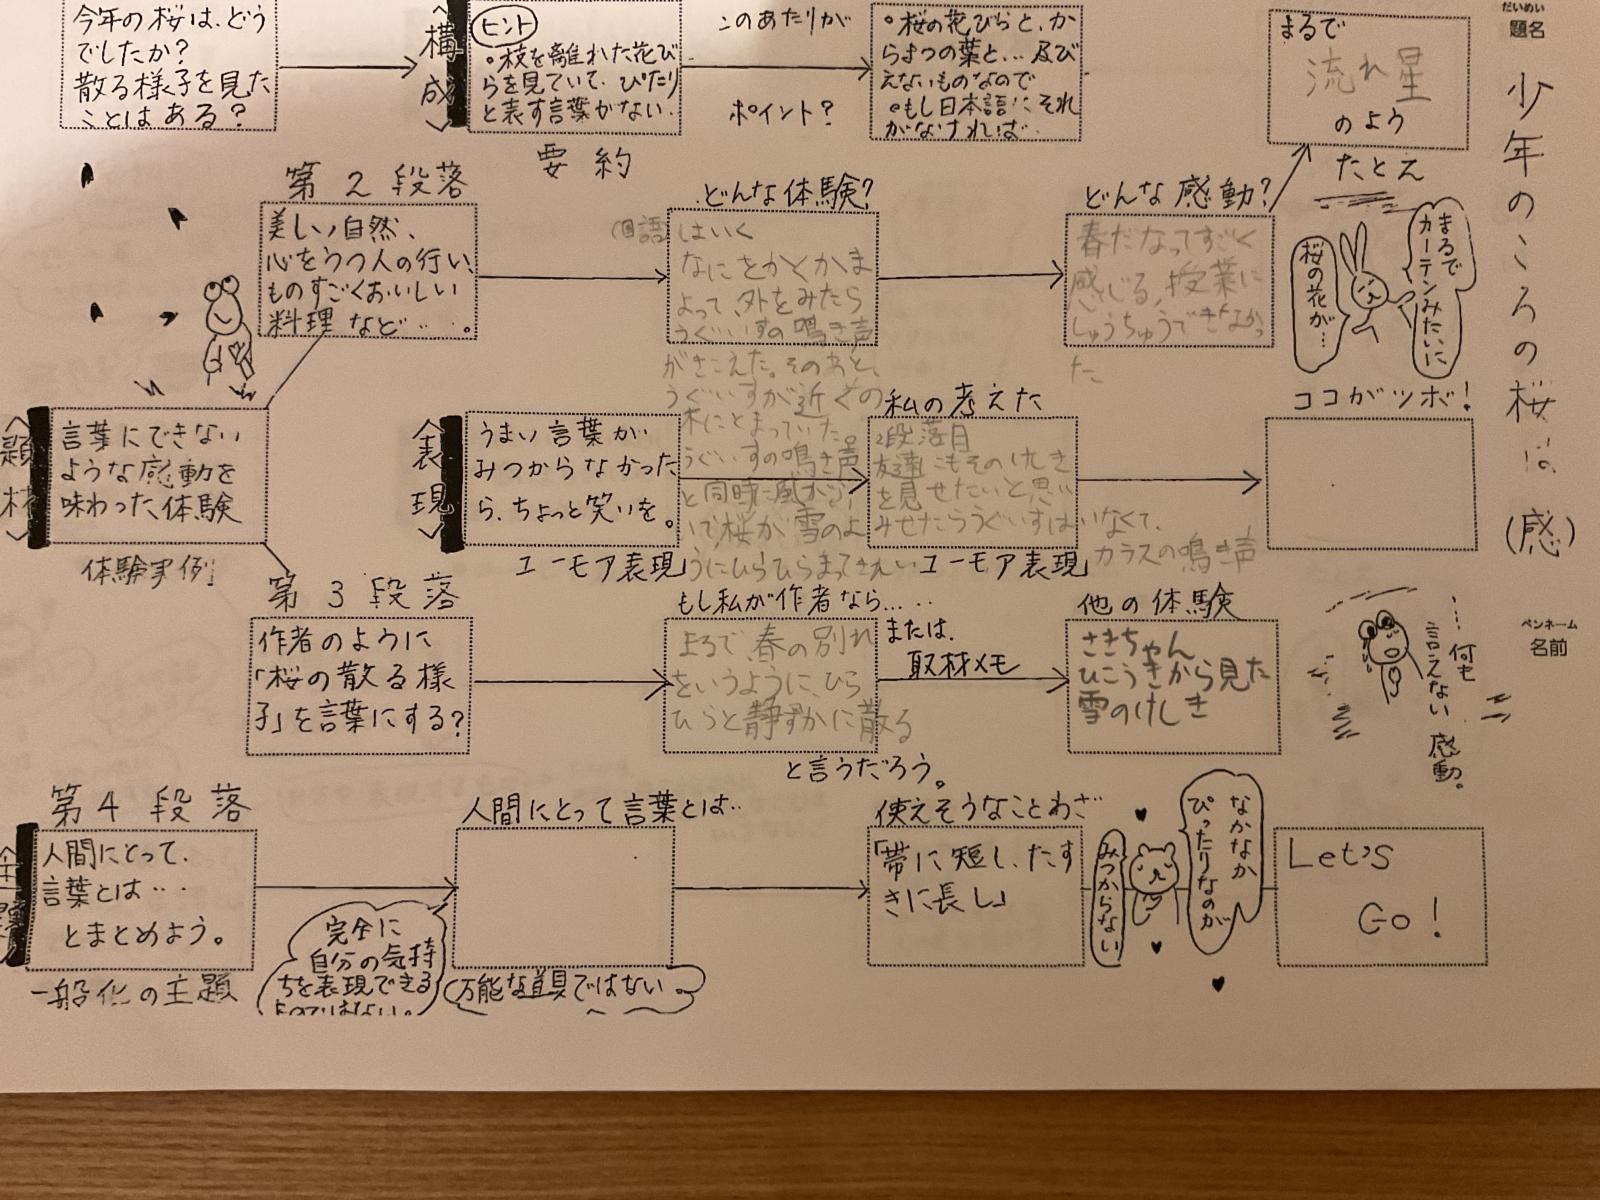 だいめい
題名
少年のころの桜は、(感)
ペンネーム
名前
今年の桜は、どう
でしたか?
散る様子を見た
ことはある?
〈構成〉
ヒント
。枝を離れた花び
らを見ていて、ぴたり
と表す言葉がない。
要約
このあたりが
ポイント?
。桜の花びらと、か
らまつの葉と…及び
えないものなので
。もし日本語にそれ
がなければ…
まるで
流れ星
のよう
たとえ
第2段落
美しい自然、
心をうつ人の行い、
ものすごくおいしい
料理など‥‥。
どんな体験?
国語
はいく
なにをかくかま
よって、外をみたら
うぐいすの鳴き声
がきこえた。そのあと、
うぐいすが近くの
木にとまっていた。
うぐいすの鳴き声
と同時に風がふ
いて、桜が雪のよ
うにひらひらまってきれい
どんな感動?
春だなってすごく
感じる。授業に
しゅうちゅうできなかっ
た
まるで
カーテンみたいに
桜の花が…
〈題材〉
言葉にできない
ような感動を
味わった体験
体験実例
〈表現〉
うまい言葉が
みつからなかった
ら、ちょっと笑いを。
ユーモア表現
私の考えた
2段落目
友達にもそのけしき
を見せたいと思い
みせたらうぐいすはいなくて、
カラスの鳴き声
ユーモア表現
ココがツボ!
第3段落
作者のように
「桜の散る様
子」を言葉にする?
もし私が作者なら……
まるで、春の別れ
をいうように、ひら
ひらと静ずかに散る
と言うだろう。
または、
取材メモ
他の体験
さきちゃん
ひこうきから見た
雪のけしき
…何も
言えない
感動。
第4段落
人間にとって、
言葉とは‥‥
とまとめよう。
一般化の主題
完全に
自分の気持
ちを表現できる
ものではない。
人間にとって言葉とは‥
万能な道具ではない。
使えそうなことわざ
「帯に短し、たす
きに長し」
なかなか
ぴったりなのが
みつからない
Let's
Go!